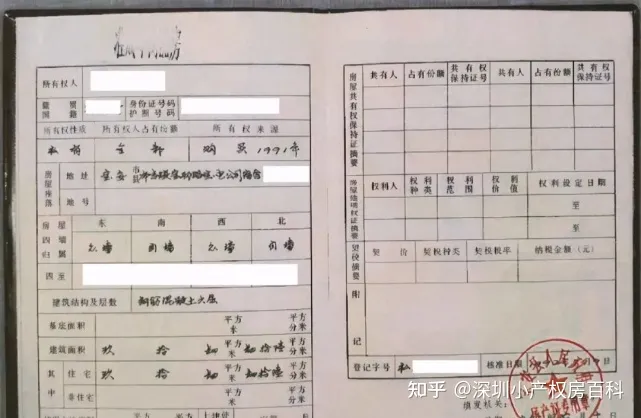 所有权人
籍贯
国籍
身份证号码
护照号码
所有权性质 所有权人占有份额 所有权来源
私有 全部 购买1991年
房屋座落
地址 宝安 市县
地号
房屋四墙归属
东 南 西 北
自墙 自墙
四至
建筑结构及层数 钢筋混凝土六层
基底面积 平方米 平方分米
建筑面积 玖 拾 平方米 平方分米
其中
住宅 玖 拾 平方米 平方分米
非住宅 平方
房屋共有权保持证摘要
共有人 占有份额 共有权保持证号 共有人 占有份额 共有权保持证号
房屋他项权证摘要
权利人 权利种类 权利范围 权利价值 权利设定日期
至
至
契税摘要
契价 契税种类 契税税率 纳税金额(元)
附记
登记字号 私 核准日期
填发机关
知乎 @深圳小产权房百科